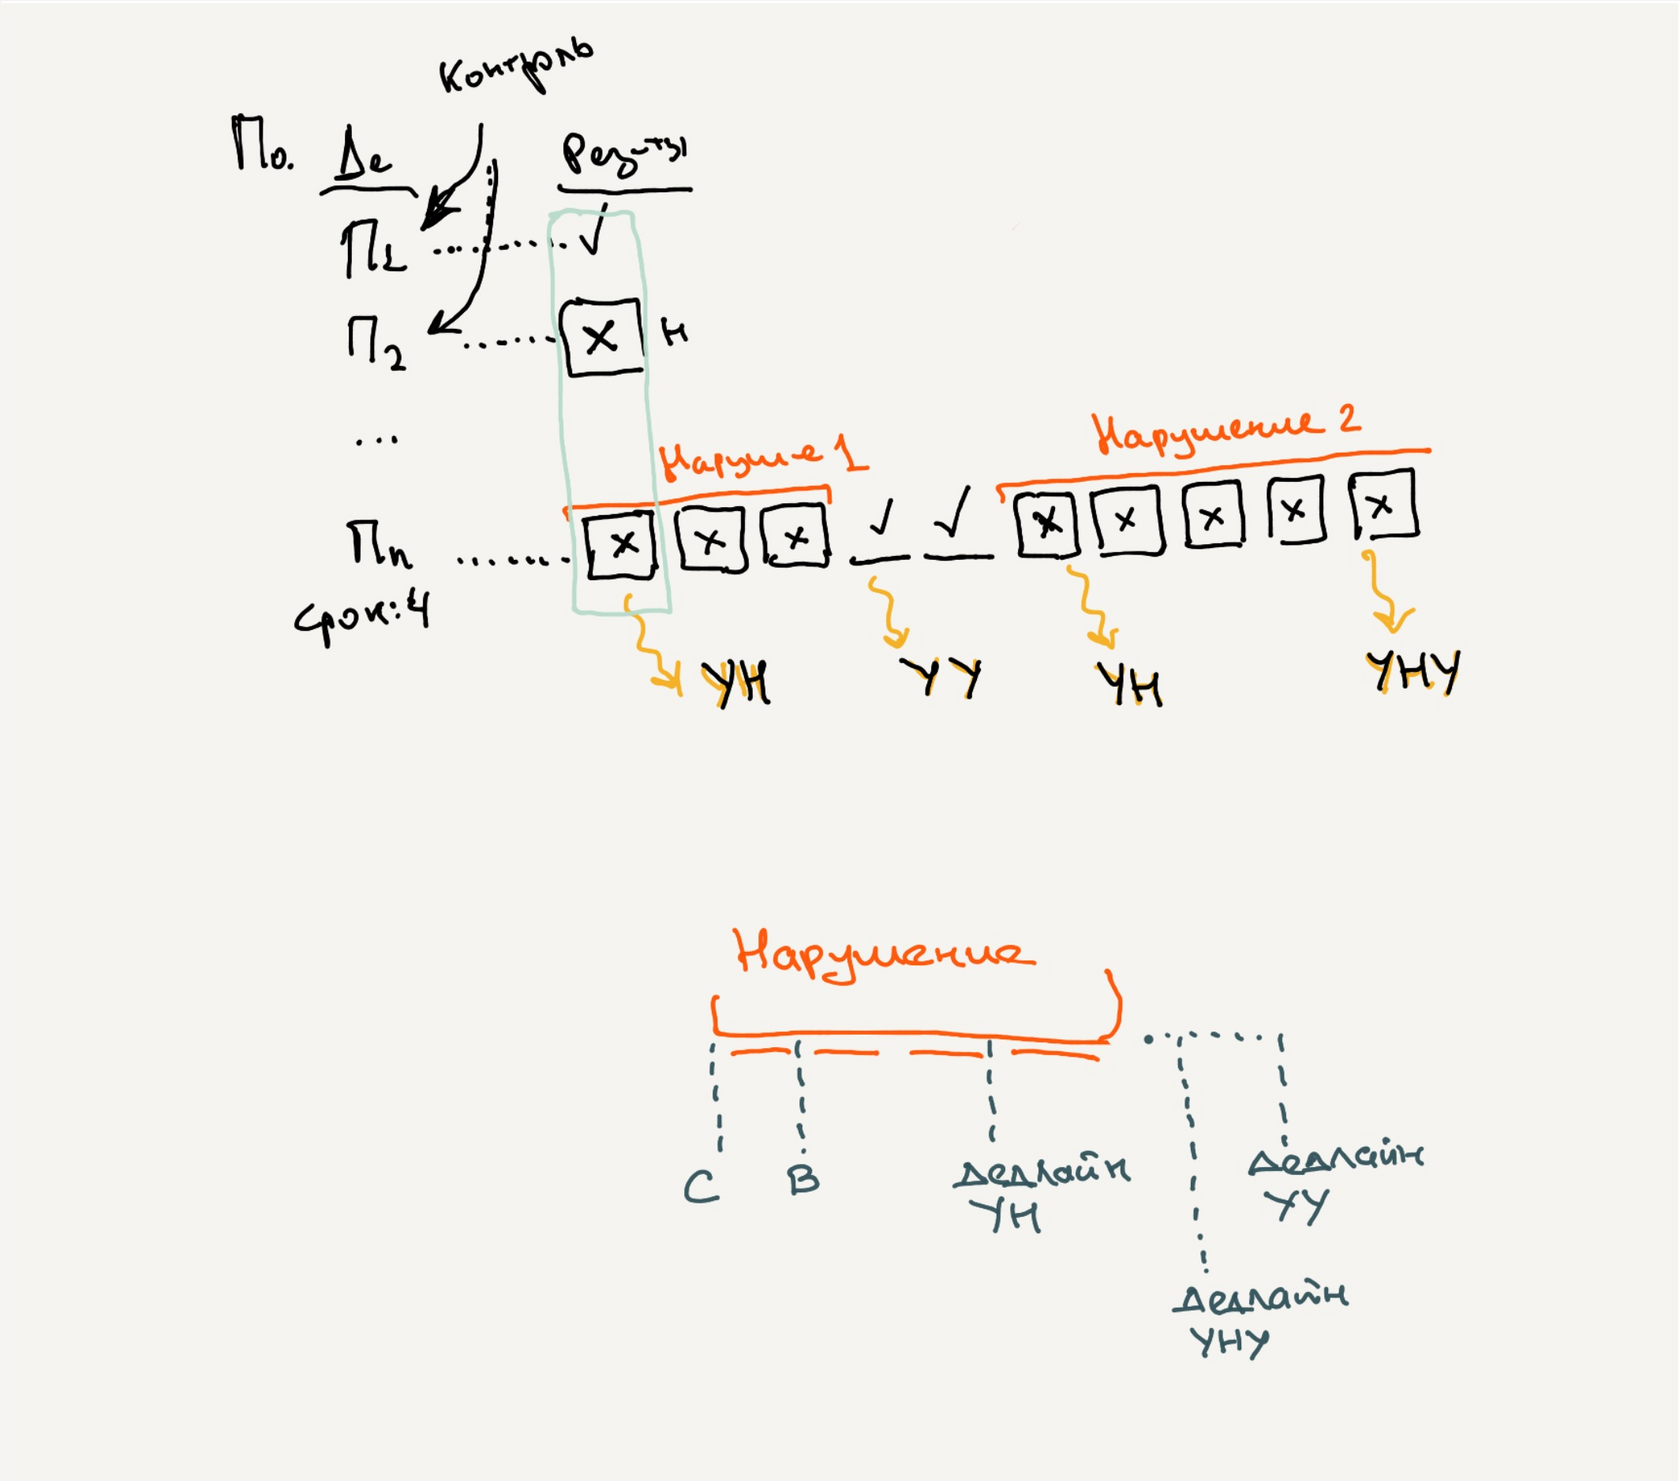 Контроль
По. Де Рез-ты
П1 ........... ✓
П2 ...... x н
...
Наруш-е 1 Нарушение 2
Пn ....... x x x ✓ ✓ x x x x x
Срок: 4
УН УУ УН УНУ
Нарушение
С В Дедлайн Дедлайн
УН УУ
Дедлайн
УНУ